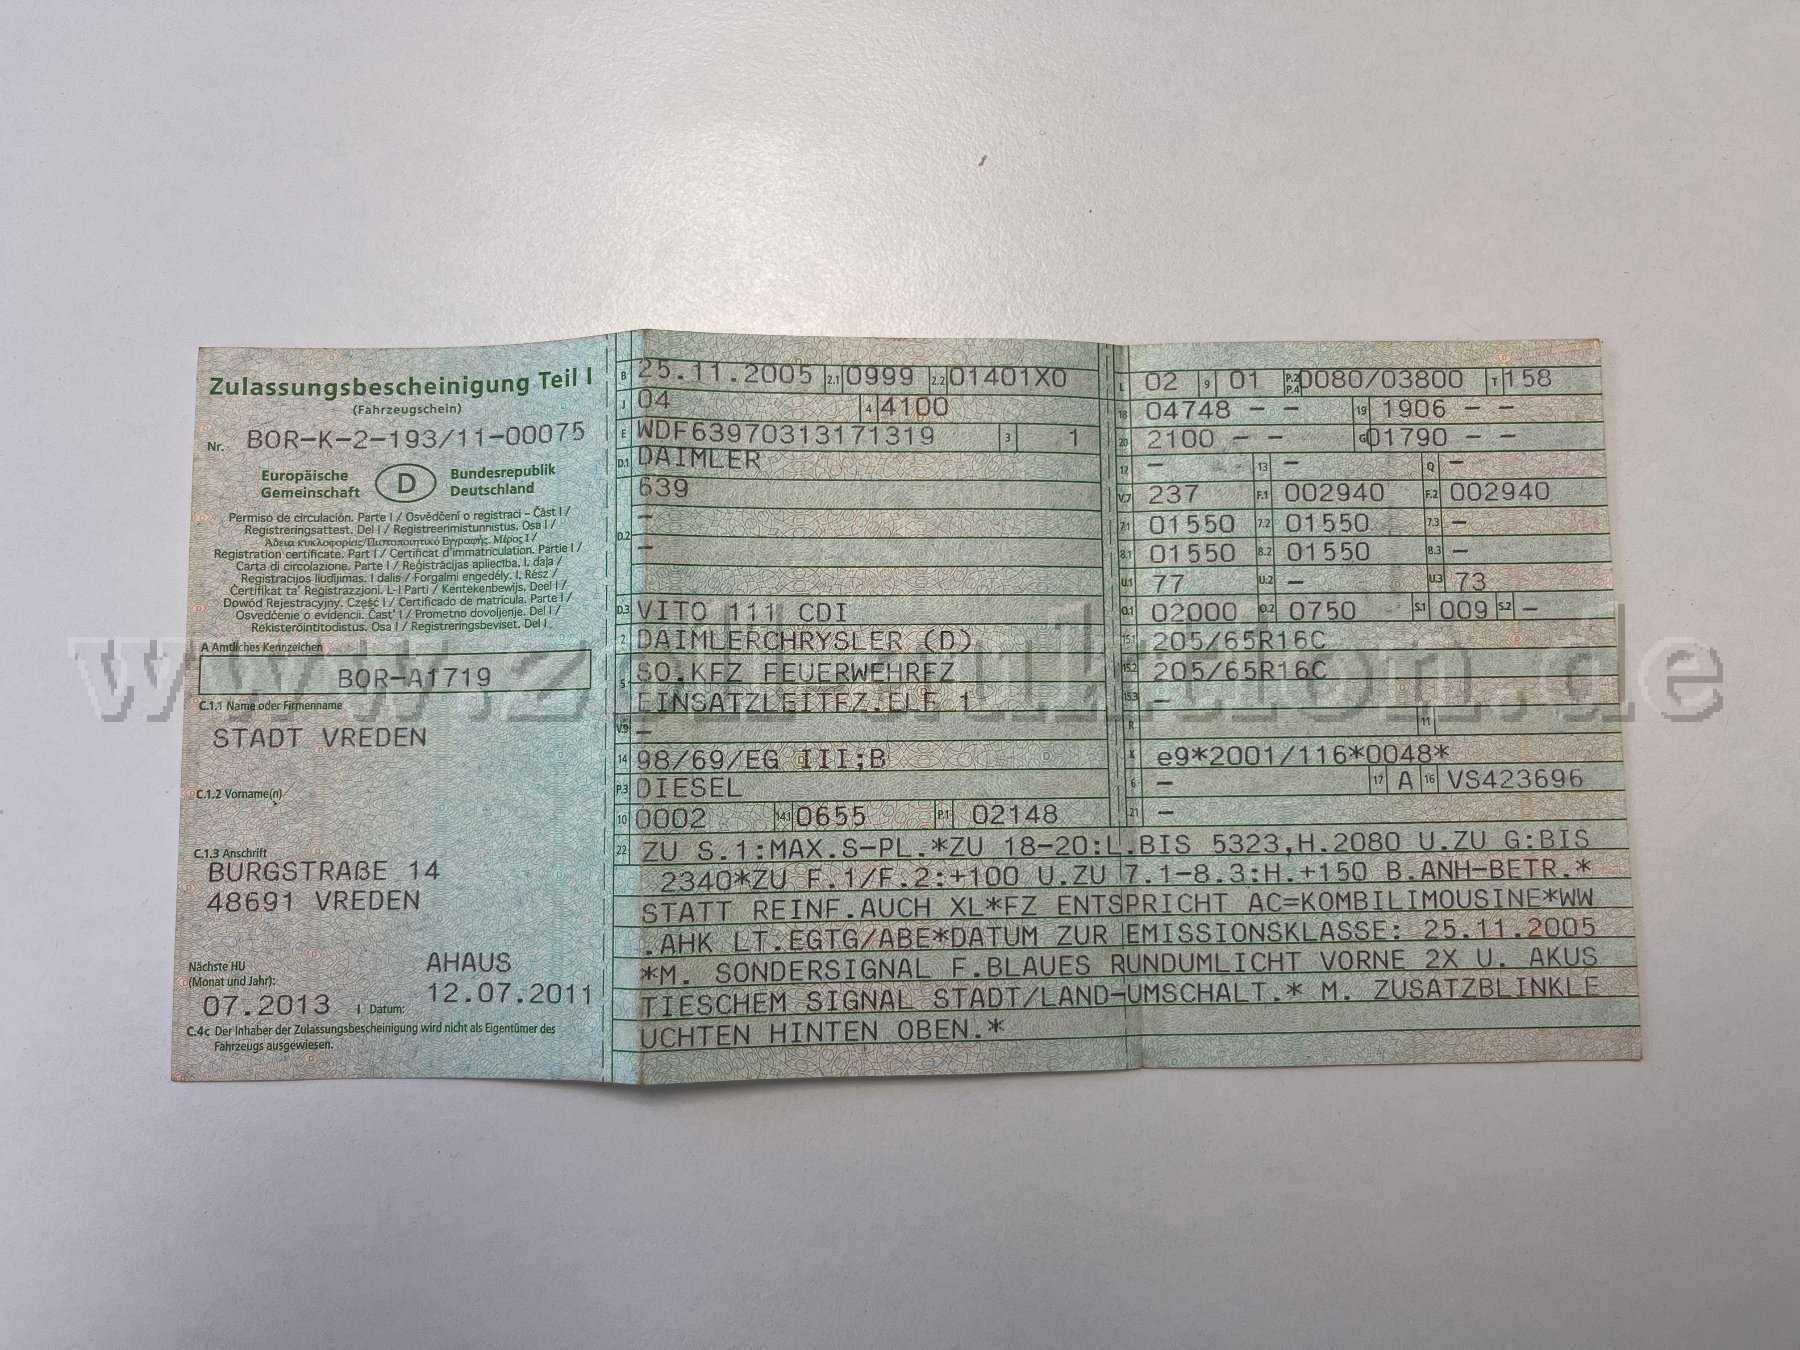 Zulassungsbescheinigung Teil I
(Fahrzeugschein)
Nr. BOR-K-2-193/11-00075
Europäische Gemeinschaft D Bundesrepublik Deutschland
Permiso de circulación. Parte I / Osvědčení o registraci – Část I /
Registreringsattest. Del I / Registreerimistunnistus. Osa I /
Άδεια κυκλοφορίας/Πιστοποιητικό Εγγραφής. Μέρος I /
Registration certificate. Part I / Certificat d'immatriculation. Partie I /
Carta di circolazione. Parte I / Reģistrācijas apliecība. I. daļa /
Registracijos liudijimas. I dalis / Forgalmi engedély. I. Rész /
Ċertifikat ta' Reġistrazzjoni. L-I Parti / Kentekenbewijs. Deel I /
Dowód Rejestracyjny. Część I / Certificado de matrícula. Parte I /
Osvedčenie o evidencii. Časť I / Prometno dovoljenje. Del I /
Rekisteröintitodistus. Osa I / Registreringsbeviset. Del I
A Amtliches Kennzeichen
BOR-A1719
C.1.1 Name oder Firmenname
STADT VREDEN
C.1.2 Vorname(n)
C.1.3 Anschrift
BURGSTRAßE 14
48691 VREDEN
Nächste HU
(Monat und Jahr):
AHAUS
07.2013 I Datum: 12.07.2011
C.4c Der Inhaber der Zulassungsbescheinigung wird nicht als Eigentümer des
Fahrzeugs ausgewiesen.
B 25.11.2005 2.1 0999 2.2 01401X0
J 04 4 4100
E WDF63970313171319 3 1
D.1 DAIMLER
639
–
D.2 –
D.3 VITO 111 CDI
2 DAIMLERCHRYSLER (D)
5 SO.KFZ FEUERWEHRFZ
EINSATZLEITFZ.ELF 1
V.9 –
14 98/69/EG III;B
P.3 DIESEL
10 0002 14.1 0655 P.1 02148
L 02 9 01 P.2 P.4 0080/03800 T 158
18 04748 – – 19 1906 – –
20 2100 – – G 01790 – –
12 – 13 – Q –
V.7 237 F.1 002940 F.2 002940
7.1 01550 7.2 01550 7.3 –
8.1 01550 8.2 01550 8.3 –
U.1 77 U.2 – U.3 73
O.1 02000 O.2 0750 S.1 009 S.2 –
15.1 205/65R16C
15.2 205/65R16C
15.3 –
R 11
K e9*2001/116*0048*
6 – 17 A 16 VS423696
21 –
22 ZU S.1:MAX.S-PL.*ZU 18-20:L.BIS 5323,H.2080 U.ZU G:BIS
2340*ZU F.1/F.2:+100 U.ZU 7.1-8.3:H.+150 B.ANH-BETR.*
STATT REINF.AUCH XL*FZ ENTSPRICHT AC=KOMBILIMOUSINE*WW
.AHK LT.EGTG/ABE*DATUM ZUR EMISSIONSKLASSE: 25.11.2005
*M. SONDERSIGNAL F.BLAUES RUNDUMLICHT VORNE 2X U. AKUS
TIESCHEM SIGNAL STADT/LAND-UMSCHALT.* M. ZUSATZBLINKLE
UCHTEN HINTEN OBEN.*
www.zoll-auktion.de